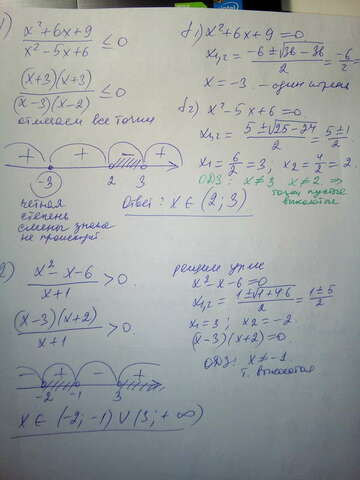 1)
x²+6x+9 / x²-5x+6 ≤ 0
(x+3)(x+3) / (x-3)(x-2) ≤ 0
отмечаем все точки
+ + - +
-3 2 3 x
четная
степень
смены знака
не происходит
б1) x²+6x+9=0
x₁,₂ = -6±√36-36 / 2 = -6/2 =
x=-3. - один
б2) x²-5x+6=0
x₁,₂ = 5±√25-24 / 2 = 5±1 / 2
x₁ = 6/2 = 3; x₂ = 4/2 = 2.
ОДЗ: x≠3 x≠2 ⇒
точки пустые
выколоты
Ответ: x ∈ (2; 3)
2)
x²-x-6 / x+1 > 0.
(x-3)(x+2) / x+1 > 0.
- + - +
-2 -1 3
x ∈ (-2; -1) ∪ (3; +∞)
решим урав
x²-x-6=0
x₁,₂ = 1±√1+4·6 / 2 = 1±5 / 2
x₁=3; x₂=-2.
(x-3)(x+2)=0
ОДЗ: x≠-1
т. выколотая